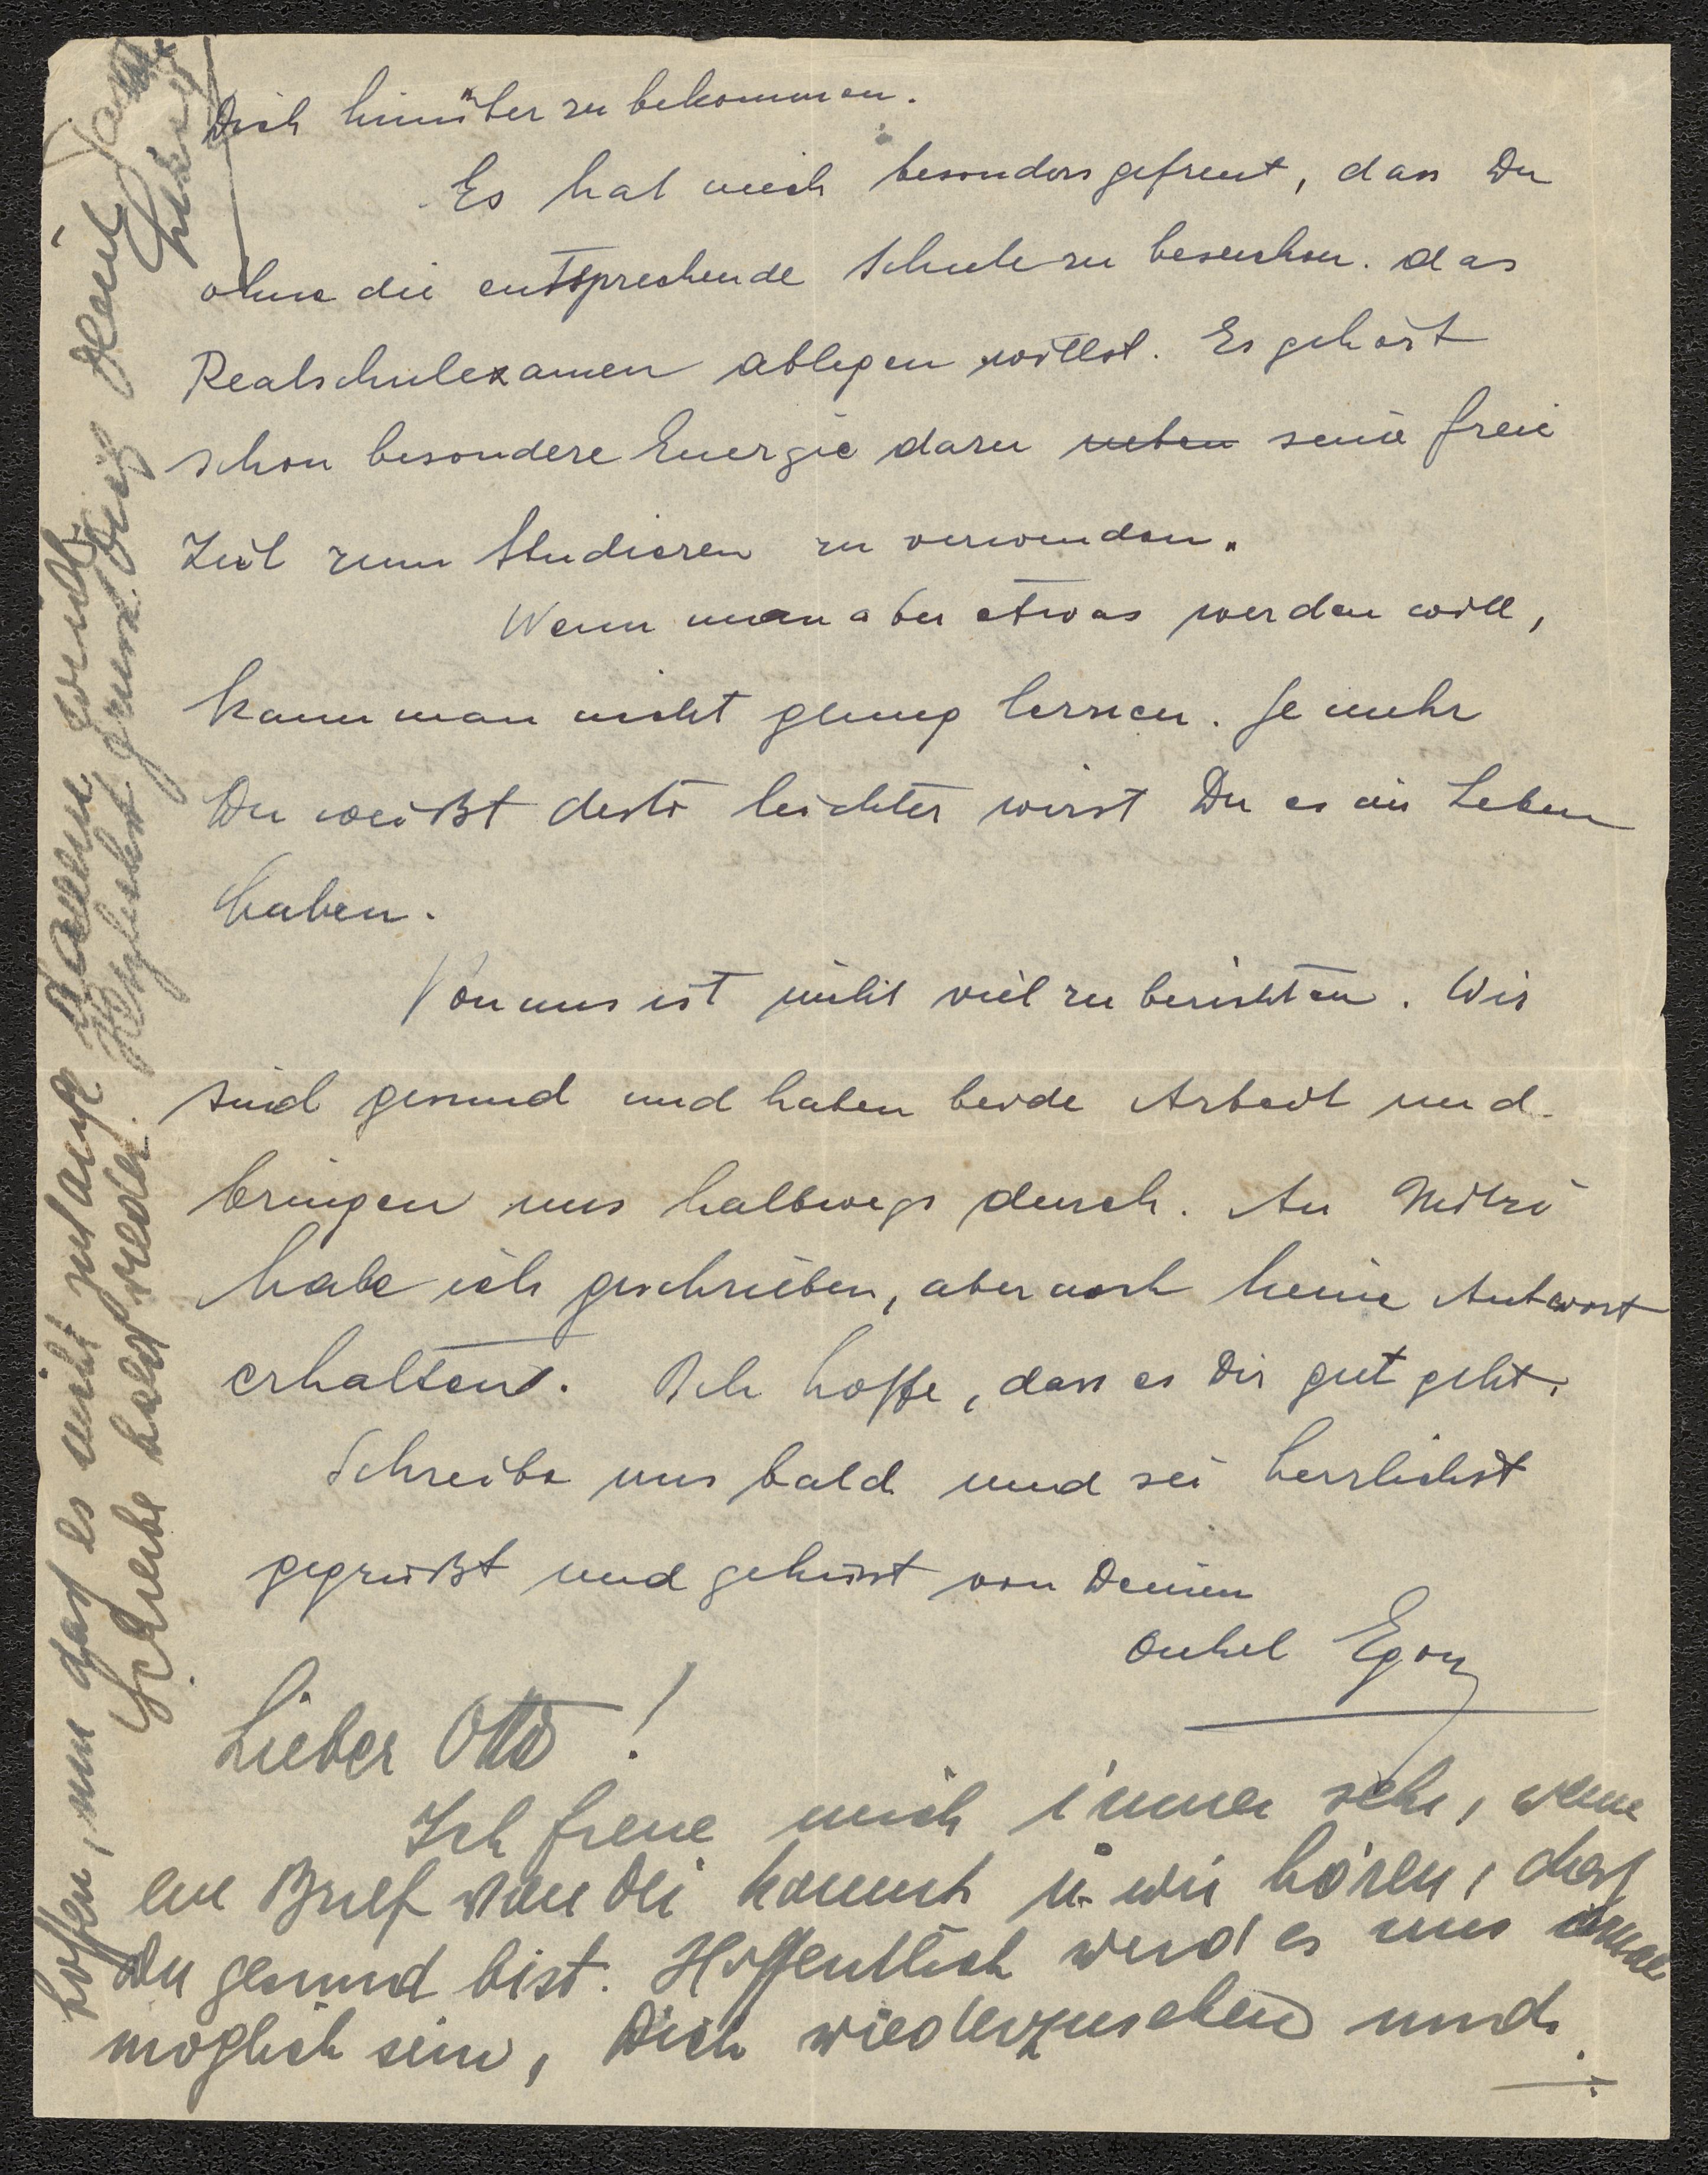 Dich hinüber zu bekommen.
Es hat mich besonders gefreut, dass Du
ohne die entsprechende Schule zu besuchen. das
Realschulexamen ablegen willst. Es gehört
schon besondere Energie dazu neben seine freie
Zeit zum Studieren zu verwenden.
Wenn man aber etwas werden will,
kann man nicht genug lernen. Je mehr
Du weißt desto leichter wirst Du es im Leben
haben.
Von uns ist nicht viel zu berichten. Wir
sind gesund und haben beide Arbeit und
bringen uns halbwegs durch. An Mitzi
habe ich geschrieben, aber noch keine Antwort
erhalten. Ich hoffe, dass es Dir gut geht.
Schreibe uns bald und sei herzlichst
gegrüßt und geküsst von Deinem
Onkel Egon
Lieber Otto!
Ich freue mich immer sehr, wenn
ein Brief von Dir kommt u. wir hören, dass
Du gesund bist. Hoffentlich wird es uns
möglich sein, Dich wiederzusehen und
hoffen, nun dass es nicht zu lange dauern wird.
Schreibe bald wieder. Herzlichst grüsst Dich Deine Tante